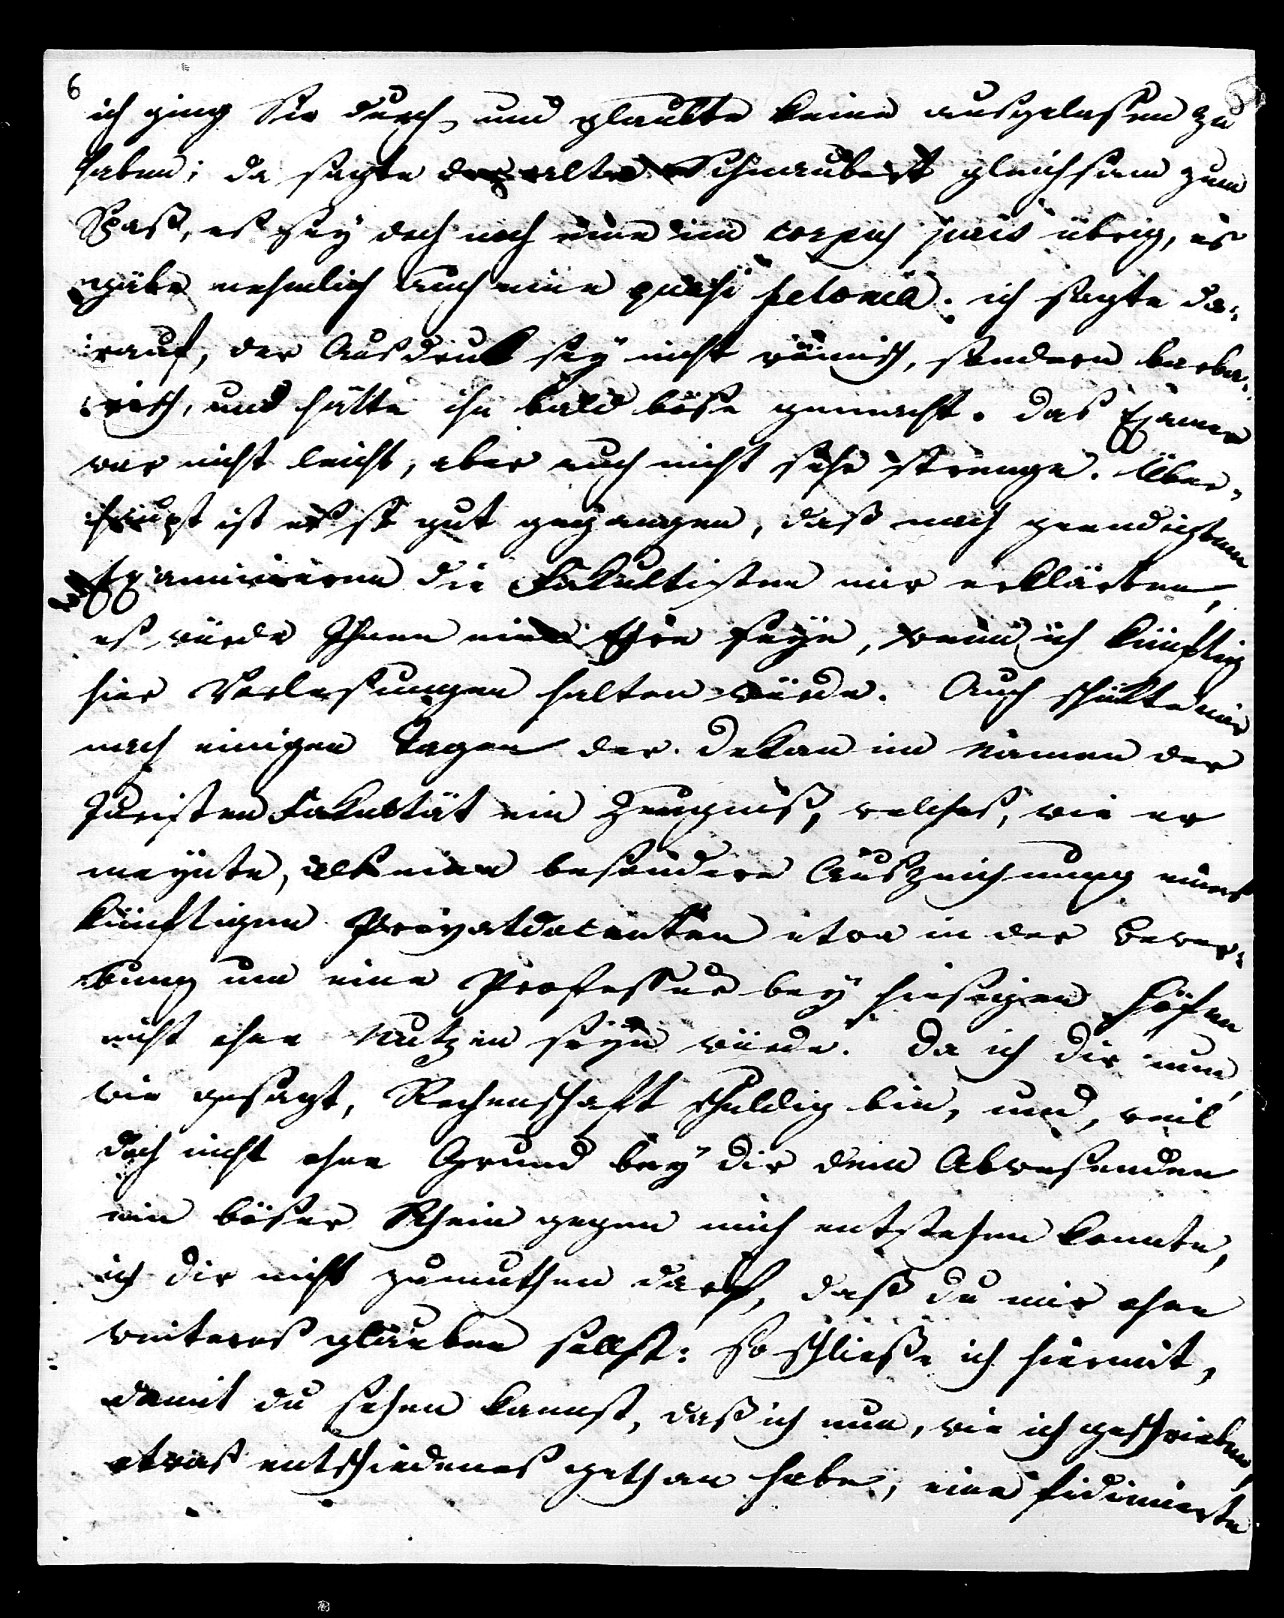 6
ich ging Sie durch, und glaubte keine ausgelaßen zu
haben; da sagte der alte Schnaubert gleichsam zum
Spaß, es sey doch noch eine im corpus juris übrig, es
gäbe nehmlich auch eine quasi felonia. ich sagte da-
rauf, der Ausdruk sey nicht römisch, sondern barba-
risch, und hätte ihn bald böse gemacht. Das Examen
war nicht leicht, aber auch nicht sehr strenge. Über-
haupt ist es so gut gegangen, daß nach geendigtem
Examiniren die Fakultisten mir erklärten,
es würde Ihnen eine Ehre seyn, wenn ich künftig
hier Vorlesungen halten würde. Auch schikte mir
nach einigen Tagen der Dekan im Namen der
Juristen Fakultät ein Zeugniß, welches, wie er
meynte, als eine besondere Auszeichnung eines
künftigen Privatdocenten etwa in der Bewer-
bung um eine Professur bey hiesigen Höfen
nicht ohne Nutzen seyn würde. Da ich dir nun,
wie gesagt, Rechenschaft schuldig bin, und, weil
doch nicht ohne Grund bey dir dem Abwesenden
ein böser Schein gegen mich entstehen konnte,
ich dir nicht zumuthen darf, daß du mir ohne
weiteres glauben sollst: so schließe ich hiermit,
damit du sehen kannst, daß ich nun, wie ich geschrieben,
etwas entschiedenes gethan habe, eine fidimierte